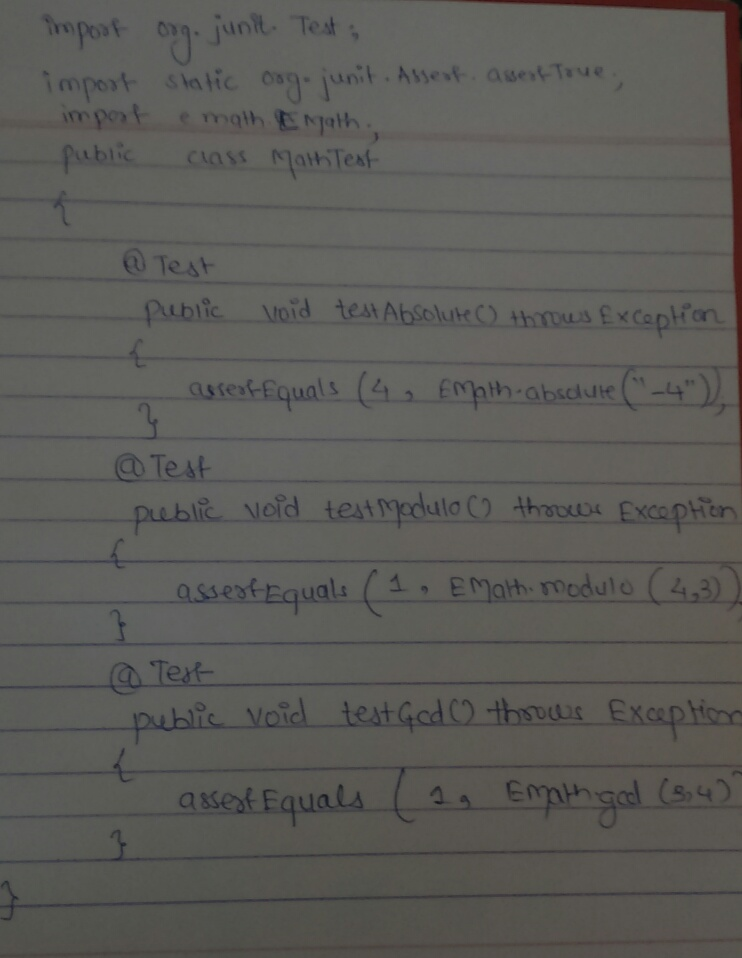 import org.junit.Test;
import static org.junit.Assert.assertTrue;
import emath.EMath;
public class MathTest
{
@Test
public void testAbsolute() throws Exception
{
assertEquals (4, EMath.absolute("-4"));
}
@Test
public void testModulo() throws Exception
{
assertEquals (1, EMath.modulo (4,3))
}
@Test
public void testGcd() throws Exception
{
assertEquals (1, EMath.gcd (3,4)
}
}